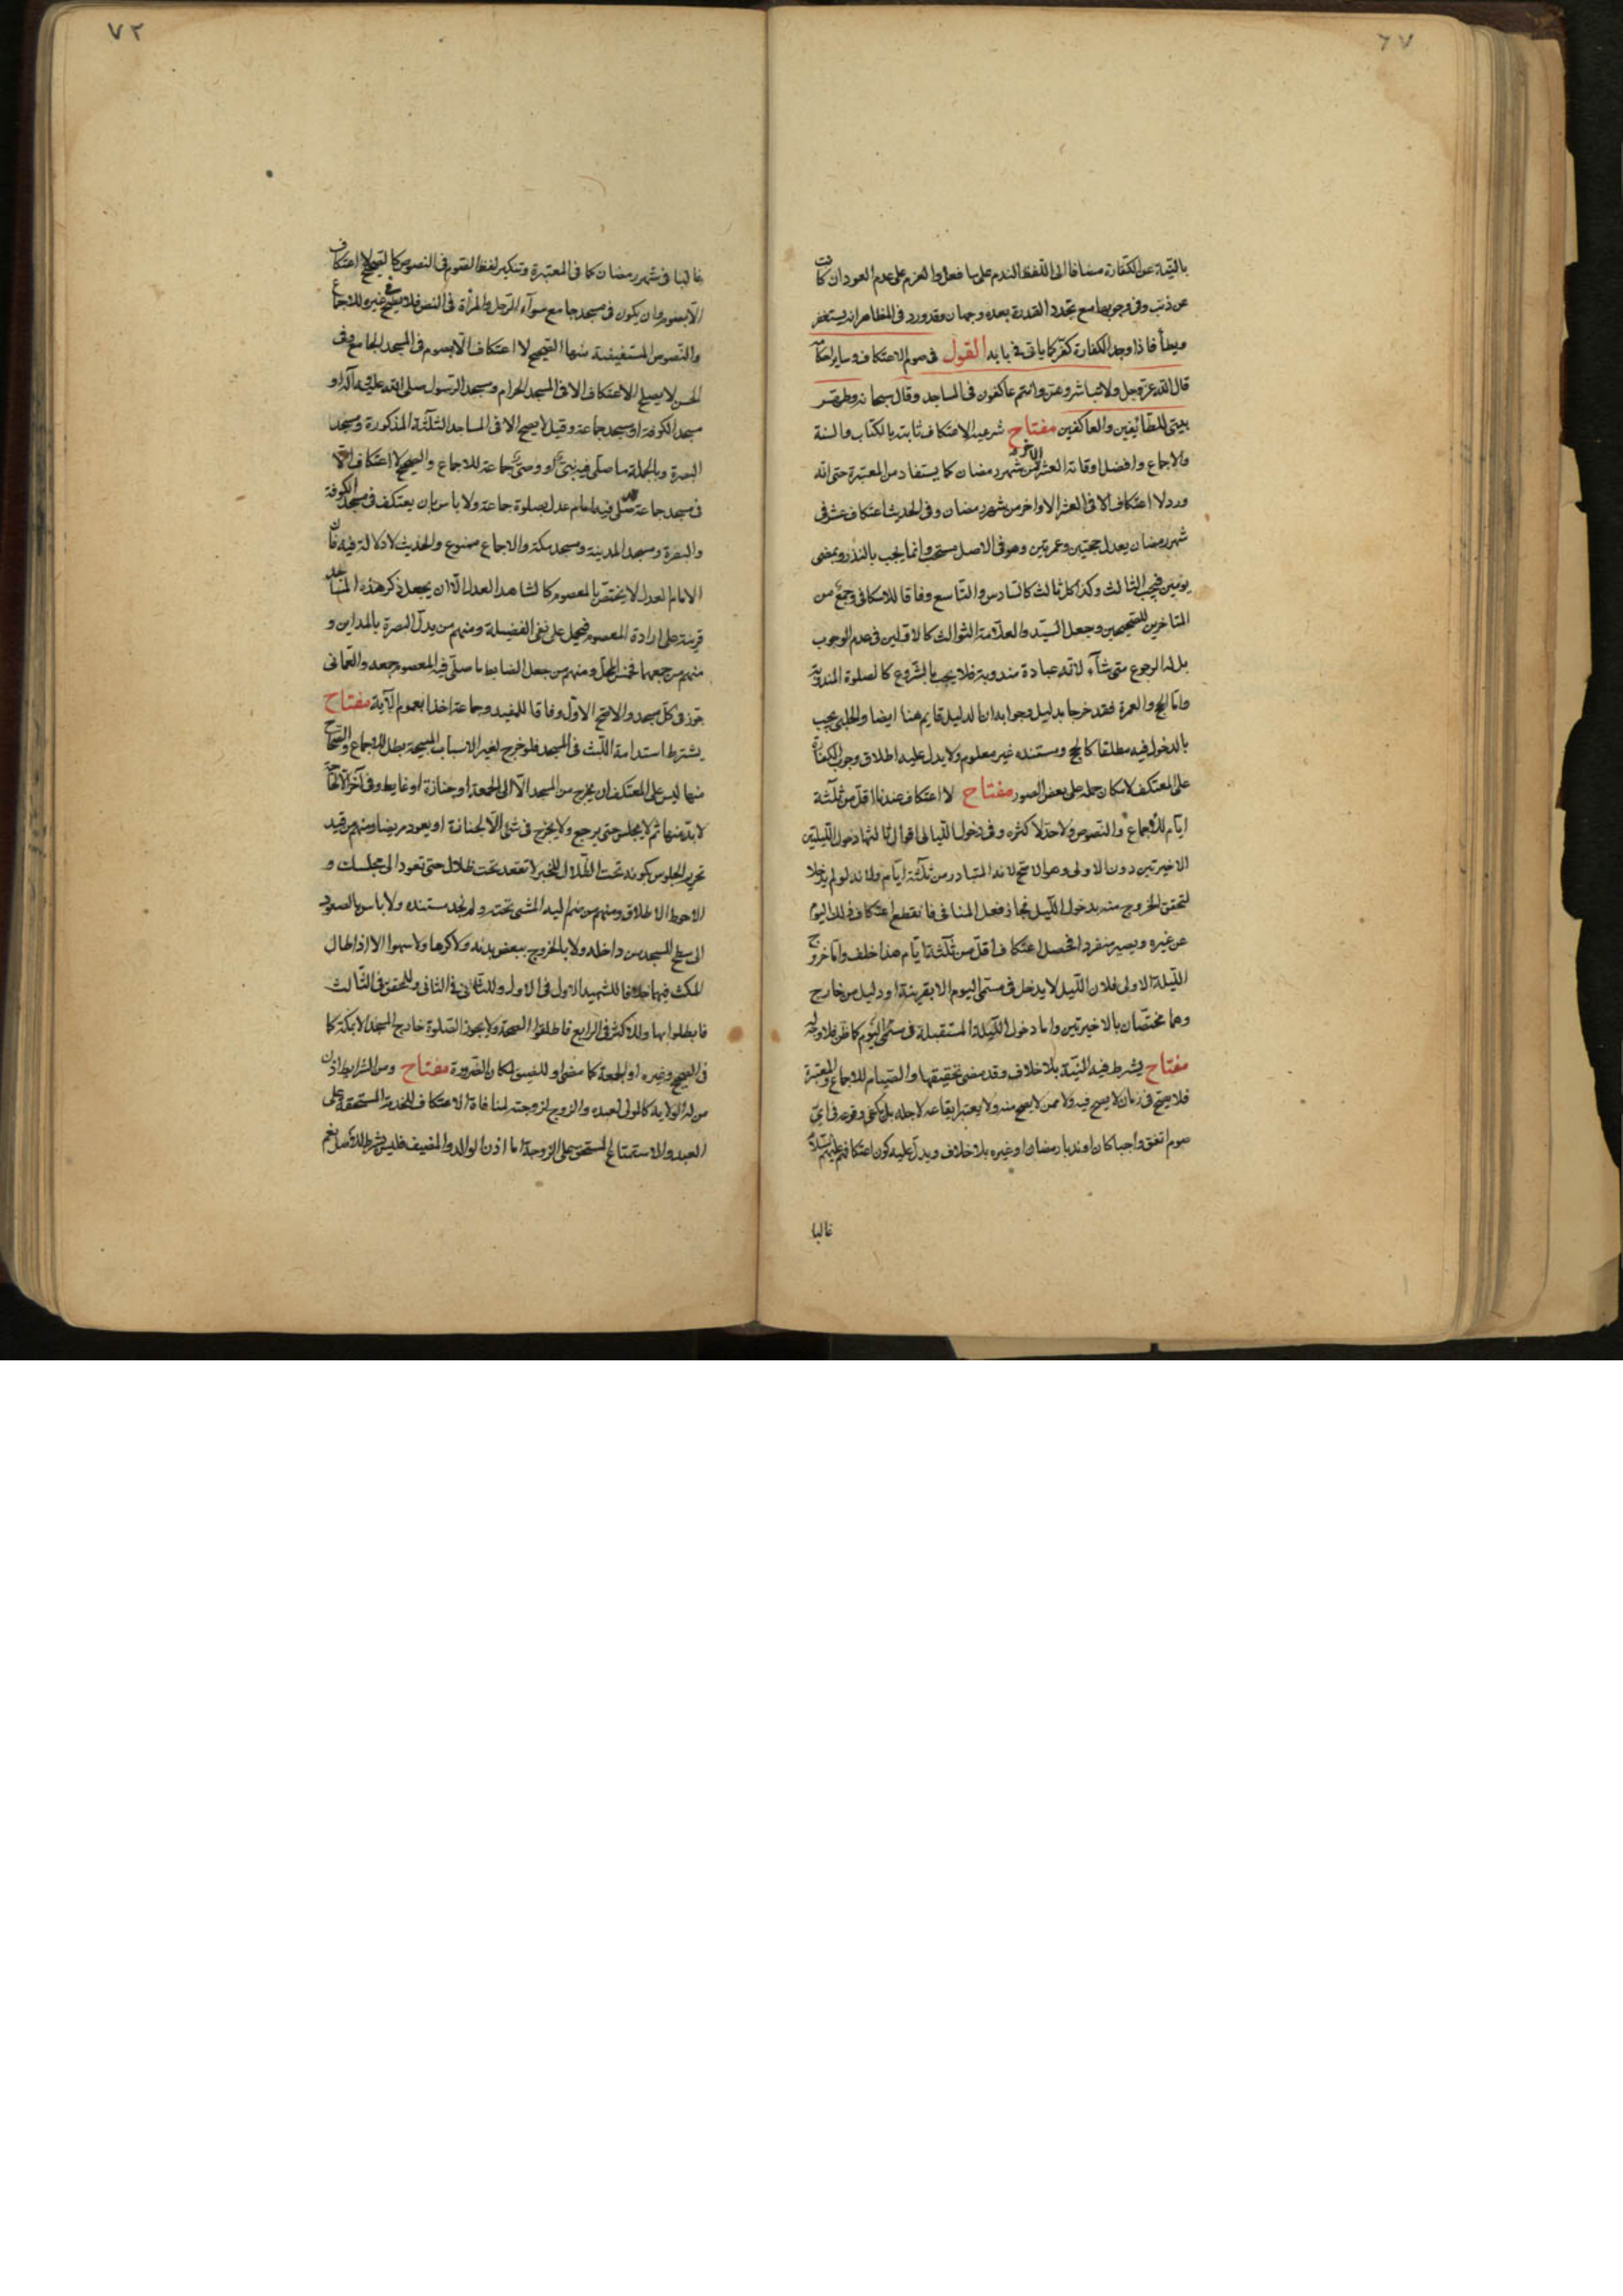 ٦٧
بالنية عن الكفارة مضافا الى اللفظ الندم على ما فعل والعزم على عدم العود ان كانت
عن ذنب وفى وجوبها مع تجدد القدرة بعده وجهان وقد ورد فى المظاهر انه يستغفر
ويطأ فاذا وجد الكفارة كفر كما ياتى فى بابه القول فى صوم الاعتكاف وساير احكامه
قال الله عز وجل ولا تباشروهن وانتم عاكفون فى المساجد وقال سبحانه وطهر
بيتى للطائفين والعاكفين مفتاح شرعية الاعتكاف ثابتة بالكتاب والسنة
والاجماع وافضل اوقاته العشر الاخر من شهر رمضان كما يستفاد من المعتبرة حتى انه
ورد لا اعتكاف الا فى العشر الاواخر من شهر رمضان وفى الحديث اعتكاف عشر فى
شهر رمضان يعدل حجتين وعمرتين وهو فى الاصل مستحب وانما يجب بالنذر وبمضى
يومين فيجب الثالث وكذا كل ثالث كالسادس والتاسع وفاقا للاسكافى وجمع من
المتاخرين للصحيحين وجعل السيد والعلامة الثوالث كالاولين فى عدم الوجوب
بل له الرجوع متى شآء لانه عبادة مندوبة فلا يجب بالشروع كالصلوة المندوبة
واما الحج والعمرة فقد خرجا بدليل وجوابه ان الدليل قايم هنا ايضا والحلبى يجب
بالدخول فيه مطلقا كالحج ومستنده غير معلوم ولا يدل عليه اطلاق وجوب الكفارة
على المعتكف لامكان حمله على بعض الصور مفتاح لا اعتكاف عندنا اقل من ثلثة
ايام للاجماع والنصوص ولا حد لاكثره وفى دخول الليالى اقوال ثالثها دخول الليلتين
الاخيرتين دون الاولى وهو الاصح لانه المتبادر من ثلثة ايام ولانه لو لم يدخلا
لتحقق الخروج منه بدخول الليل فجاز فعل المنافى فانقطع اعتكاف ذلك اليوم
عن غيره ويصير منفردا فحصل اعتكاف اقل من ثلثة ايام هذا خلف واما خروج
الليلة الاولى فلان الليل لا يدخل فى مسمى اليوم الا بقرينة او دليل من خارج
وهما مختصان بالاخيرتين واما دخول الليلة المستقبلة فى مسمى اليوم كما ظن فلا وجه له
مفتاح يشرط فيه النية بلا خلاف وقد مضى تحقيقها والصيام للاجماع والمعتبرة
فلا يصح فى زمان لا يصح فيه ولا ممن لا يصح منه ولا يعتبر ايقاعه لاجله بل يكفى وقوعه فى اى
صوم اتفق واجبا كان او ندبا رمضان او غيره بلا خلاف ويدل عليه كون اعتكافهم عليهم السلام
غالبا
٧٢
غالبا فى شهر رمضان كما فى المعتبرة وتنكير لفظ الصوم فى النصوص كالصحيح لا اعتكاف
الا بصوم وان يكون فى مسجد جامع سوآء الرجل والمرأة فى النص فلا يصح فى غيره للاجماع
والنصوص المستفيضة منها الصحيح لا اعتكاف الا بصوم فى المسجد الجامع وفى
الحسن لا يصلح الاعتكاف الا فى المسجد الحرام ومسجد الرسول صلى الله عليه وآله او
مسجد الكوفة او مسجد جماعة وقيل لا يصح الا فى المساجد الثلثة المذكورة ومسجد
البصرة وبالجملة ما صلى فيه نبى او وصى جماعة للاجماع والصحيح لا اعتكاف الا
فى مسجد جماعة قد صلى فيه امام عدل بصلوة جماعة ولا باس بان يعتكف فى مسجد الكوفة
والبصرة ومسجد المدينة ومسجد مكة والاجماع ممنوع والحديث لا دلالة فيه فان
الامام العدل لا يختص بالمعصوم كالشاهد العدل الا ان يجعل ذكر هذه المساجد
قرينة على ارادة المعصوم فيحمل على نفى الفضيلة ومنهم من بدل البصرة بالمداين و
منهم من جمعهما فخمس المحل ومنهم من جعل الضابط ما صلى فيه المعصوم جمعه والعمانى
جوز فى كل مسجد والاصح الاول وفاقا للمفيد وجماعة اخذا بعموم الآية مفتاح
يشترط استدامة اللبث فى المسجد فلو خرج لغير الاسباب المبيحة بطل للاجماع والصحاح
منها ليس على المعتكف ان يخرج من المسجد الا الى الجمعة او جنازة او غايط وفى آخر الا لحاجة
لا بد منها ثم لا يجلس حتى يرجع ولا يخرج فى شئ الا لجنازة او يعود مريضا ومنهم من قيد
تحريم الجلوس بكونه تحت الظلال للخبر لا تقعد تحت ظلال حتى تعود الى مجلسك و
الاحوط الاطلاق ومنهم من ضم اليه المشى تحته ولم نجد مستنده ولا باس بالصعود
الى سطح المسجد من داخله ولا بالخروج ببعض بدنه ولا كرها ولا سهوا الا اذا طال
المكث فيهما خلافا للشهيد الاول فى الاول وللثانى فى الثانى وللمحقق فى الثالث
فابطلوا بها وللاكثر فى الرابع فاطلقوا الصحة ولا يجوز الصلوة خارج المسجد الا بمكة كما
فى الصحيح وغيره او الجمعة كما مضى او للضيق لمكان الضرورة مفتاح ومن الشرايط اذن
من له الولاية كالمولى لعبده والزوج لزوجته لمنافاة الاعتكاف للخدمة المستحقة على
العبد والاستمتاع المستحق على الزوجة اما اذن الوالد والمضيف فليس بشرط للاصل نعم